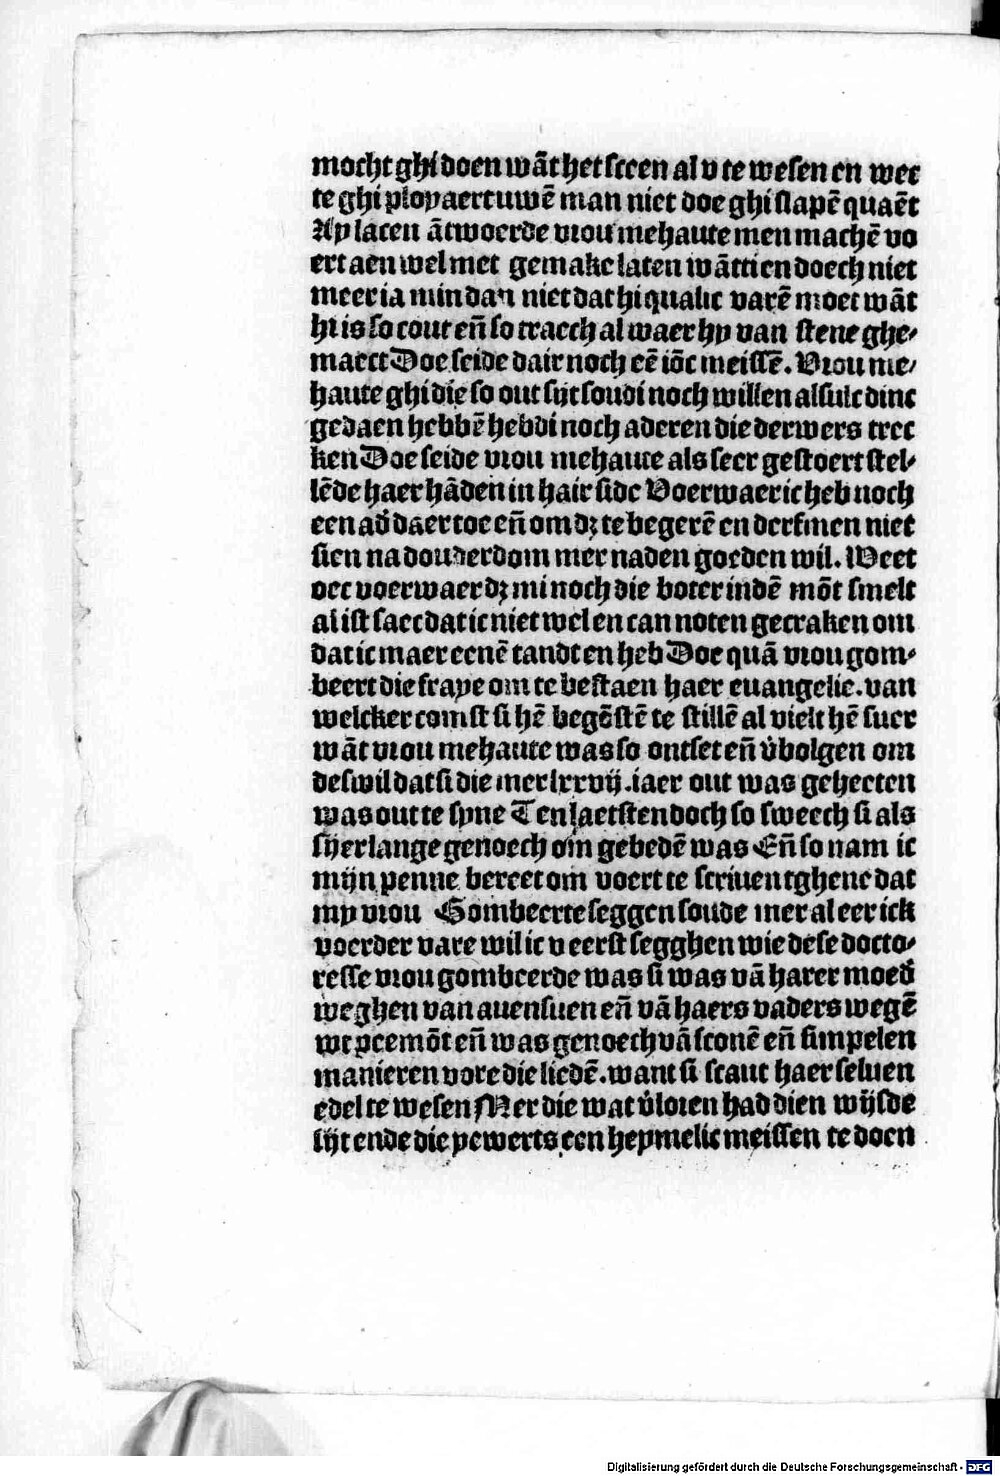 mocht ghi doen wāt het steen al v te wesen en wec
te ghi ployaert uwē man niet doe ghi slapē quaēt
Ay lacen ātwoerde vrou mehaute men machē vo
ert aen wel met gemake laten wāttien doech niet
meer ia min dan niet dat hi qualic varē moet wāt
hi is so cout eñ so traech al waer hy van stene ghe⸗
maect Doe seide dair noch eē iōc meissē. Vrou me⸗
haute ghi die so out sijt soudi noch willen alsulc dinc
gedaen hebbē hebdi noch aderen die derwers trec
ken Doe seide vrou mehaute als seer gestoert stel⸗
lēde haer hāden in hair side Voerwaer ic heb noch
een ad̄ daer toe eñ om dz te begerē en derf men niet
sien na d ouderdom mer na den goeden wil. Weet
oec voerwaer dz mi noch die boter indē mōt smelt
al ist saec dat ic niet wel en can noten gecraken om
dat ic maer eenē tandt en heb Doe quā vrou gom⸗
beert die fraye om te bestaen haer euangelie. van
welcker comst si hē begōstē te stillē al vielt hē suer
wāt vrou mehaute was so ontset eñ v̄bolgen om
deswil dat si die mer lxxvij. iaer out was geheeten
was out te syne Ten laetsten doch so sweech si als
sijer lange genoech om gebedē was Eñ so nam ic
mijn penne bereet om voert te scriuen tghene dat
my vrou Gombeerte seggen soude mer al eer ick
voerder vare wil ic v eerst segghen wie dese docto⸗
resse vrou gombeerde was si was vā harer moed̄
weghen van auensuen eñ vā haers vaders wegē
wt pcemōt eñ was genoech vā sconē eñ simpelen
manieren vore die liedē. want si scaut haer seluen
edel te wesen Mer die wat v̄loren had dien wijsde
sijt ende die yewerts een heymelic meissen te doen
Digitalisierung gefördert durch die Deutsche Forschungsgemeinschaft - DFG